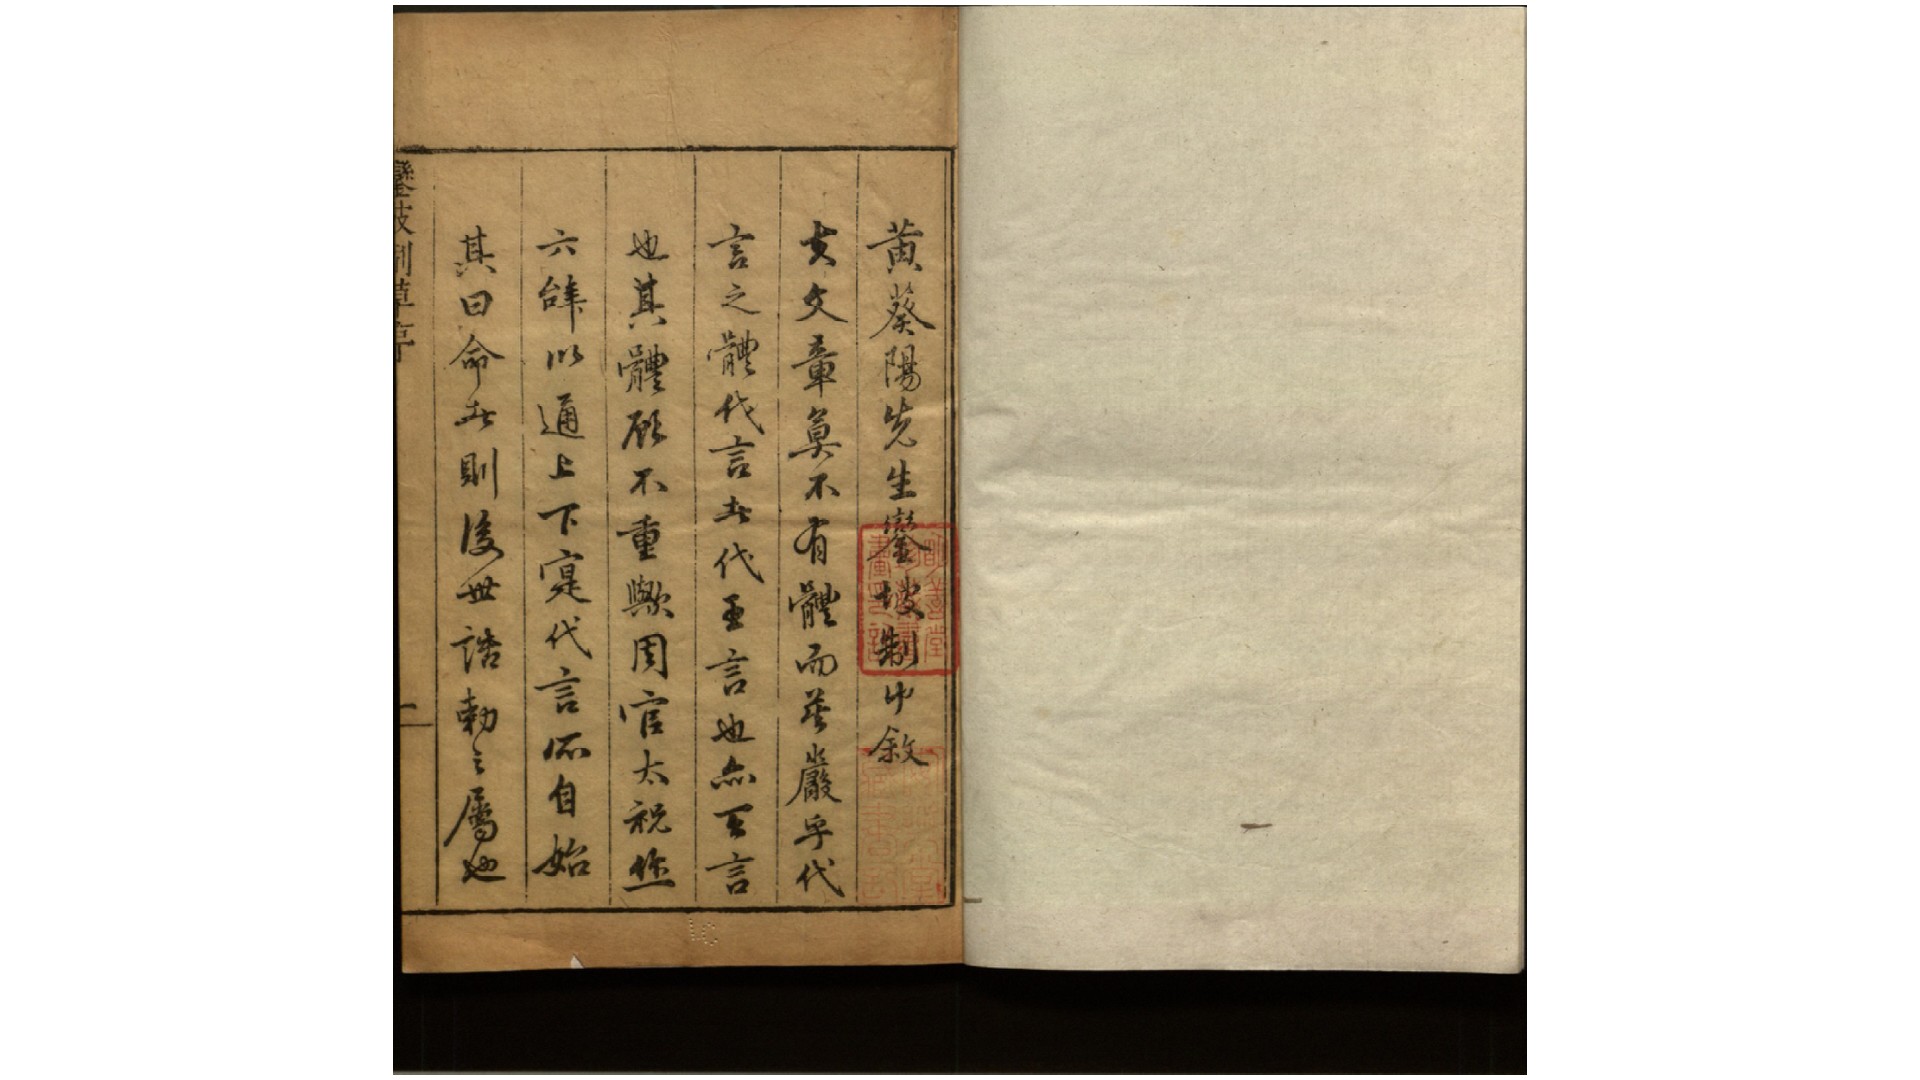 黄葵陽先生鑾坡制艸敘
夫文章莫不有體而莫嚴乎代
言之體代言者代王言也亦王言
也其體顧不重歟周官太祝作
六辭以通上下寔代言所自始
其曰命者則後世誥勅之屬也
鑾坡制草序
一
明善堂
珍藏書
畫印記